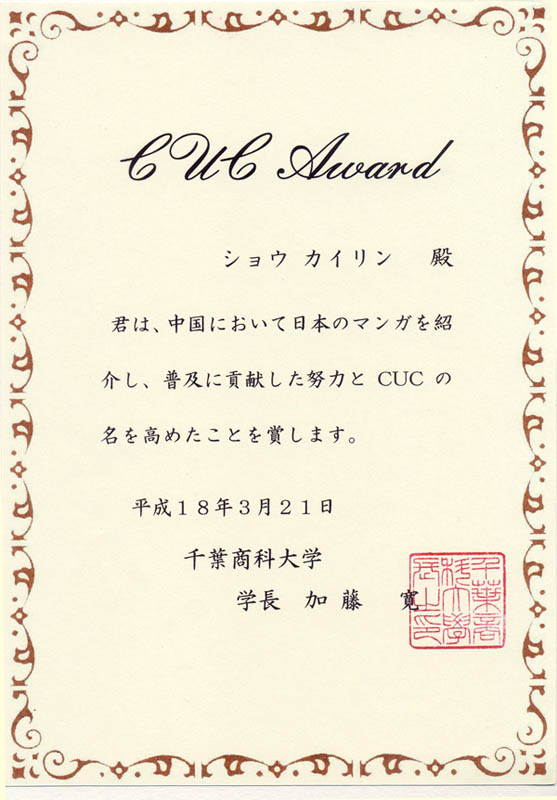 CUC Award
ショウ カイリン 殿
君は、中国において日本のマンガを紹
介し、普及に貢献した努力と CUC の
名を高めたことを賞します。
平成１８年３月２１日
千葉商科大学
学長 加藤 寛